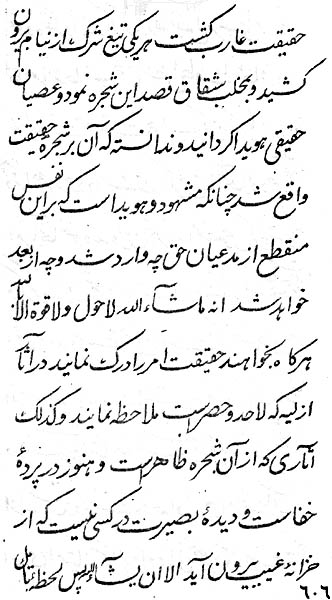 حقیقت غارب گشت هر یکی تیغ شرک از نیام بیرون
کشید و بمخلب شقاق قصد این شجره نمود و عصیان
حقیقی هویدا کردانید و ندانسته که آن بر شجرهٔ حقیقت
واقع شد چنانکه مشهود و هویداست که بر این نفس
منقطع از مدعیان حق چه وارد شد و چه از بعد
خواهد شد انه ما شآء الله لا حول و لا قوة الا بالله
هر کاه بخواهند حقیقت امر را درک نمایند در آثار
ازلیه که لاحد و حصر است ملاحظه نمایند و کذلک
آثاری که از آن شجره ظاهر است و هنوز در پردهٔ
خفاست و دیدهٔ بصیرت در کسی نیست که از
خزانهٔ غیب بیرون آید الا ان یشآء الله پس لحظهٔ تأمل
۶۰۶